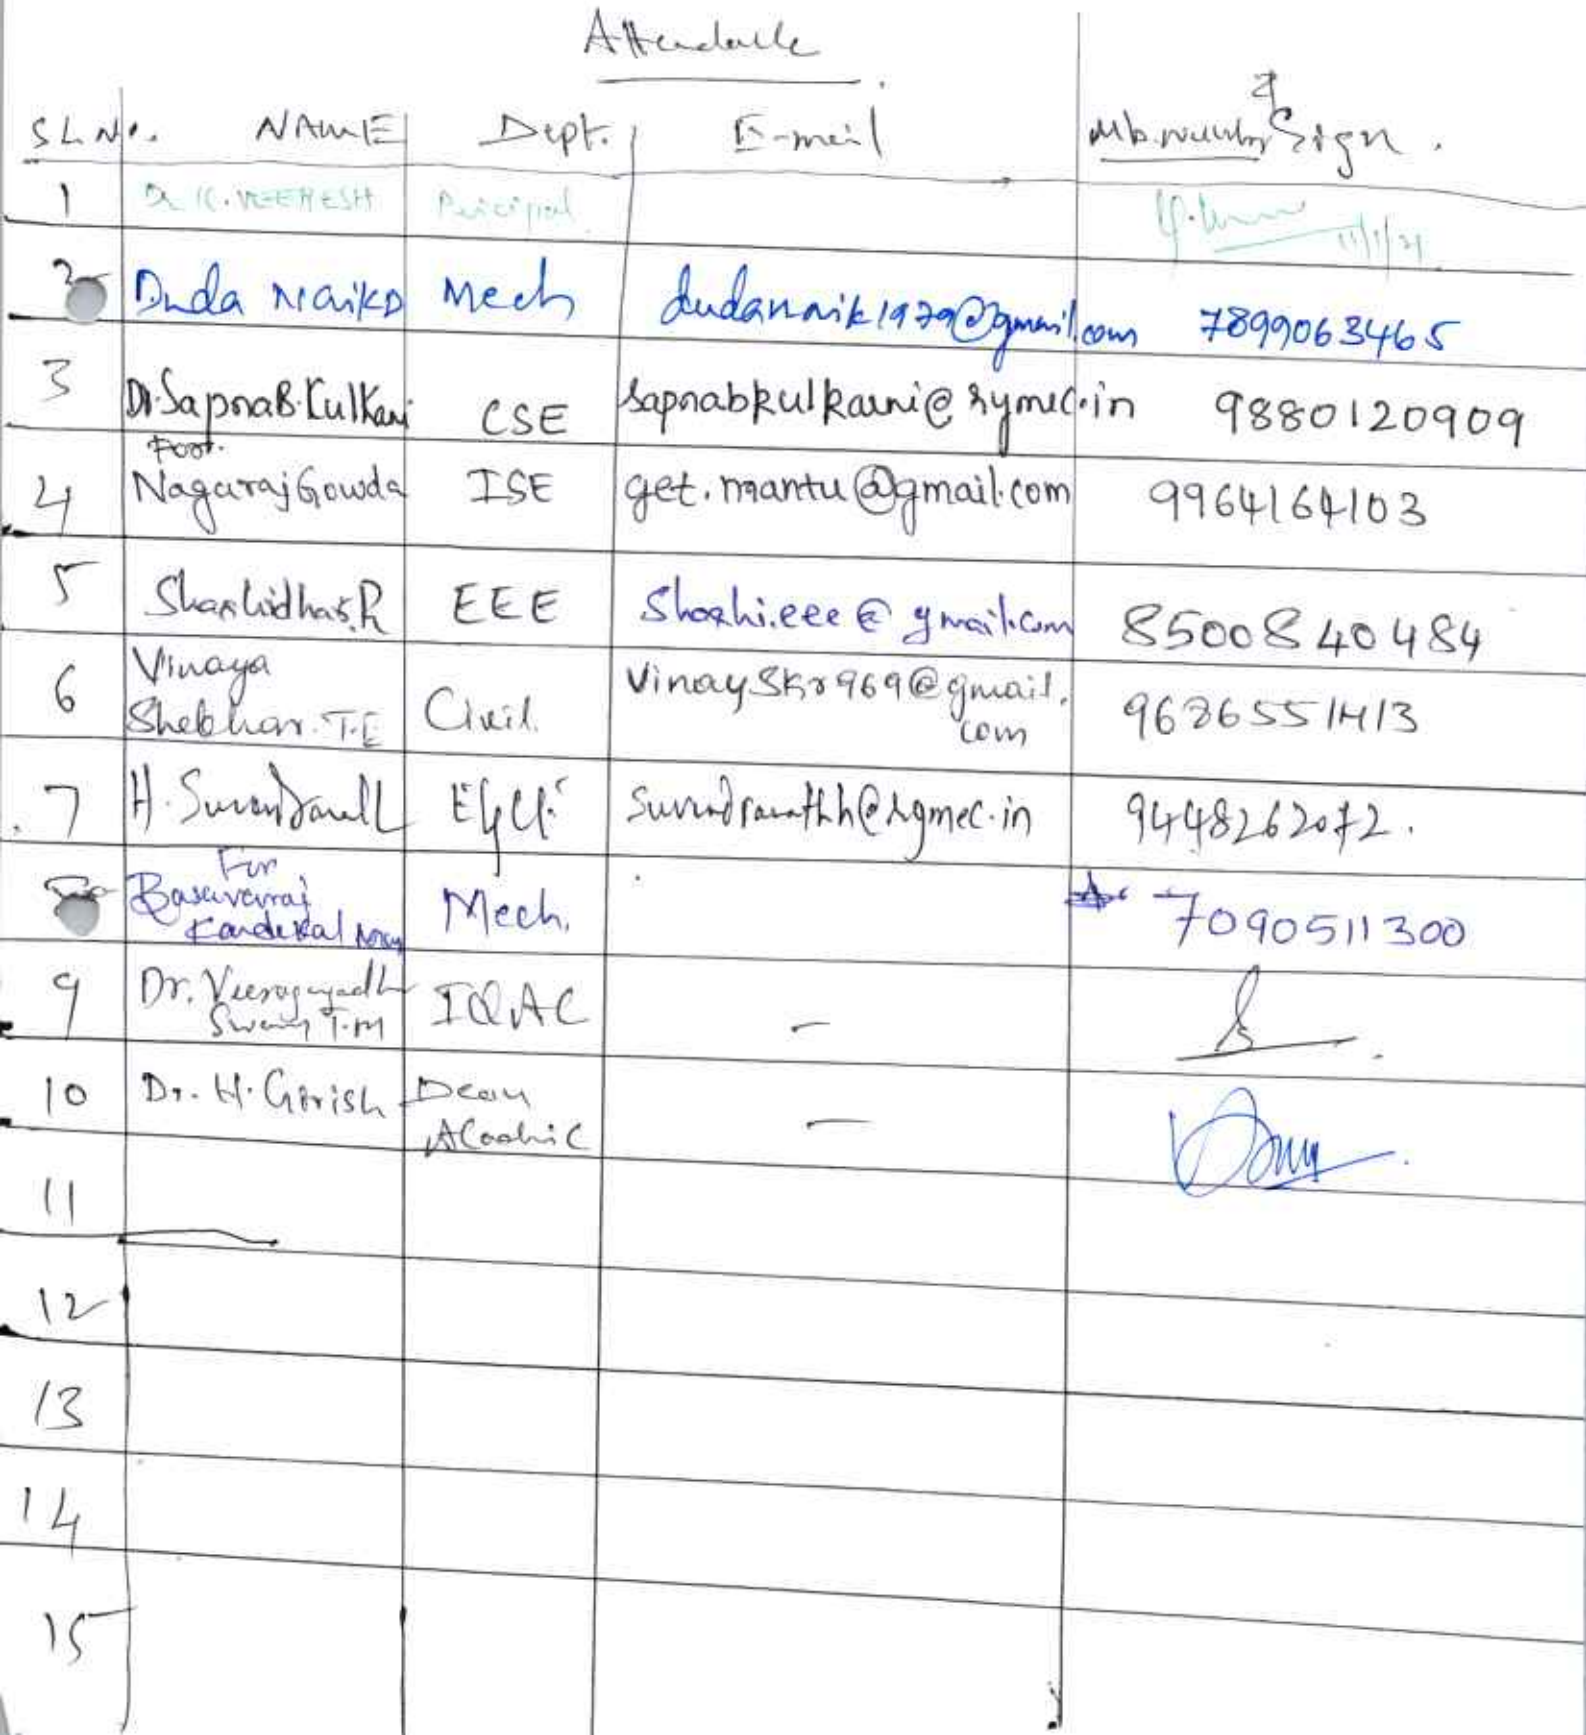 Attendance
SL.No. NAME Dept. E-mail Mb.number & Sign.
1 Dr. K. VEERESH Principal 11/1/21
2 Duda Naik D Mech dudanaik1979@gmail.com 7899063465
3 Dr. Sapna B. Kulkarni CSE sapnabkulkarni@rymec.in 9880120909
For.
4 Nagaraj Gowda ISE get.mantu@gmail.com 9964164103
5 Shashidhar.R EEE Shashi.eee@gmail.com 8500840484
6 Vinaya
Shekhar. T.E Civil. Vinayskr969@gmail.
com
7 H. E&CE 9448262072.
For
8 Basavaraj
Kandakal Mech. 7090511300
9 Dr. IQAC –
Swamy T.M
10 Dr. H. Girish Dean –
11
12
13
14
15